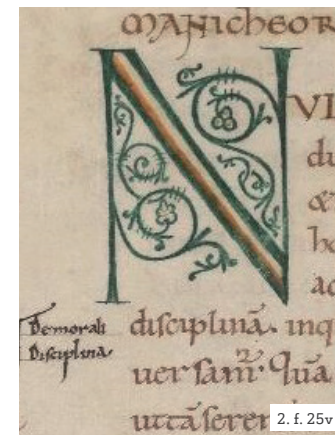 MANICHEOR
N
VI
du
&
he
ac
Demorali
Disciplina
disciplinā. inq
uersam̄. Quā
uitā seren
2. f. 25v